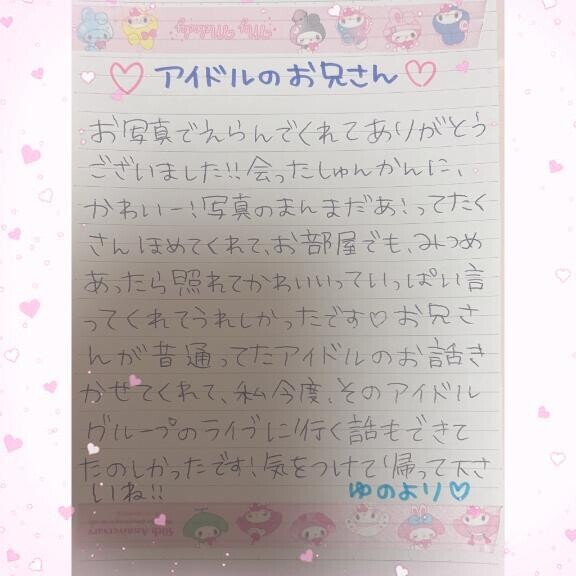 My Melody
アイドルのお兄さん
お写真でえらんでくれてありがとう
ございました!!会ったしゅんかんに、
かわいー!写真のまんまだあ!ってたく
さんほめてくれて、お部屋でも、みつめ
あったら照れてかわいいっていっぱい言
ってくれてうれしかったです♡お兄さ
んが昔通ってたアイドルのお話き
かせてくれて、私今度、そのアイドル
グループのライブに行く話もできて
たのしかったです!気をつけて帰って下さ
いね!!
ゆのより♡
40th Anniversary